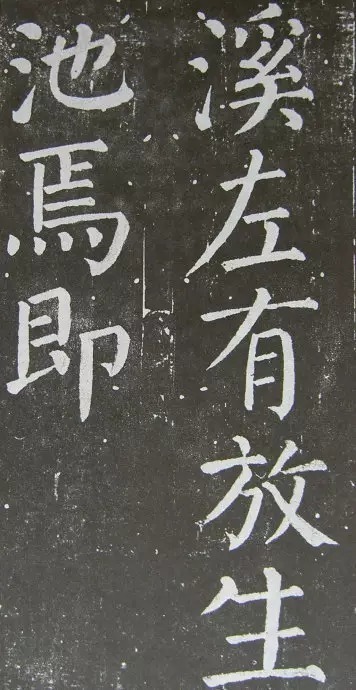 溪左有放生
池焉即